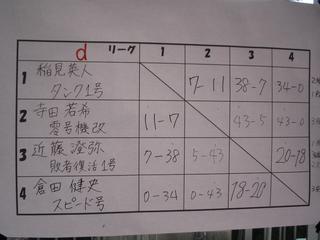 d リーグ 1 2 3 4
1 稲見英人 7-11 38-7 34-0
タンク1号
2 寺田若希 11-7 43-5 43-0
零号機改
3 近藤澄弥 7-38 5-43 20-18
敗者復活1号
4 倉田健史 0-34 0-43 18-20
スピード号